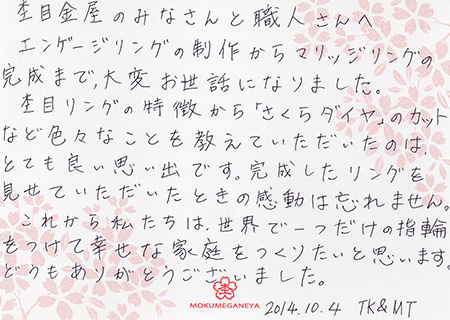 杢目金屋のみなさんと職人さんへ
エンゲージリングの制作からマリッジリングの
完成まで、大変お世話になりました。
杢目リングの特徴から「さくらダイヤ」のカット
など色々なことを教えていただいたのは、
とても良い思い出です。完成したリングを
見せていただいたときの感動は忘れません。
これから私たちは、世界で一つだけの指輪
をつけて幸せな家庭をつくりたいと思います。
どうもありがとうございました。
MOKUMEGANEYA
2014.10.4 TK&MT